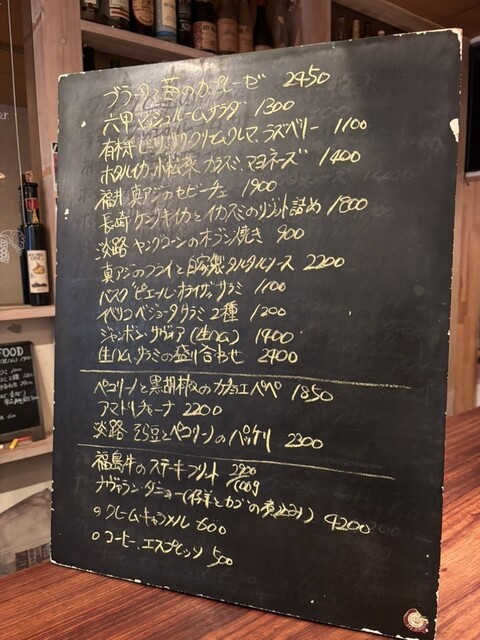 ブラータと苺のカプレーゼ 2450
六甲マッシュルームサラダ 1300
有機ビーツ クリームクルマ、ラズベリー 1100
ホタルイカ、小松菜、カラスミ、マヨネーズ 1400
福井 真アジのセビーチェ 1900
長崎 ケンサキイカとイカスミのリゾット詰め 1800
淡路 ヤングコーンのオーブン焼き 900
真アジのフライと自家製タルタルソース 2200
バスク ピエール・オテイザ サラミ 1100
イベリコ ベジョータ サラミ 2種 1200
ジャンボン・サヴォア (生ハム) 1400
生ハム、サラミの盛り合わせ 2400
ペコリーノと黒胡椒のカチョエペペ 1850
アマトリチャーナ 2200
淡路 そら豆とペコリーノのパッケリ 2300
福島牛のステーキフリット 2900
100g
ナヴァラン・ダニョー (仔羊とカブの煮込み) 4200
○クレームキャラメル 600
○コーヒー、エスプレッソ 500
FOOD